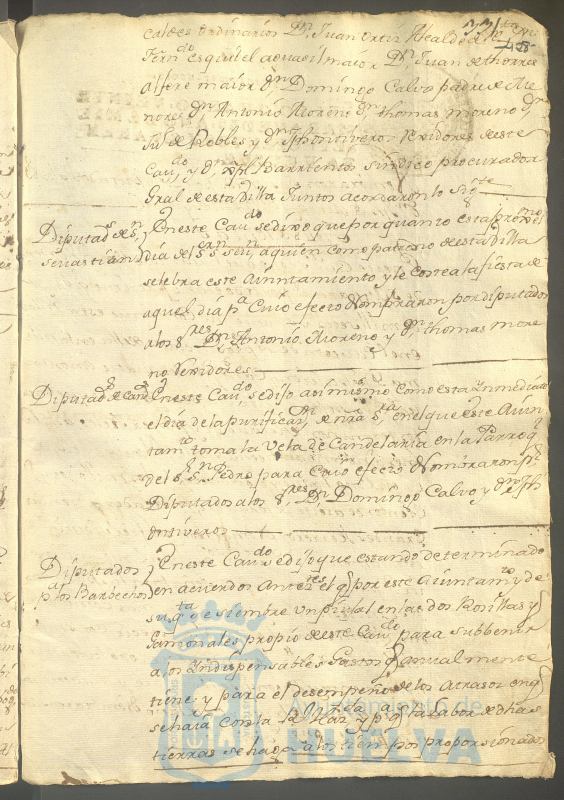 caldes ordinarios Dn. Juan Ortiz Alcalde de la
Fern.do esquibel aguacil maior Dn. Juan de thorres
alfere maior Dn. Domingo Calvo padre de Me
nores Dn. Antonio Moreno Dn. thomas moreno Dn.
de Robles y Dn. Jph ontivero Rexidores de este
Cau.do y Dn. Barrientos síndico procurador
Gral de esta Villa Juntos acordaron lo sig.te
Diputad.s de Sn. sevastian
En este Cau.do se dixo que por quanto esta proximo el
dia del Sn. Sevn. a quien como patrono de esta Villa
selebra este Aiuntamiento y le costea la fiesta de
aquel dia pa. Cuio efecto Nombraron por diputados
a los S.res Dn. Antonio Moreno y Dn. thomas more
no Rexidores
Diputad.s de Cand.
En este Cau.do se dijo asimismo como esta Inmediato
el dia de la purificaz.n de nra Sra. en el que este Aiun
tam.to toma la Vela de Candelaria en la Parroq.
del Sr. Sn. Pedro para Cuio efecto Nombraron pr.
Diputados a los S.res Dn. Domingo Calvo y Dn. Jph
ontiveros
Diputados pa. los Barbechos
En este Cau.do se dijo que estando determinado
en acuerdos Anter.res el q. por este Aiuntam.to y de
su q.ta se siembre un pujal en las dos Ronillas y
Jamonales propio de este Cau.do para subbenir
a los Yndispensables Gastos q. anualmente
tiene y para el desempeño de los atrasos en q.
se halla con la Rl. Haz. y pa. q. la labor de dhas
tierras se haga a los tiempos proporsionados
Ayuntamiento de
HUELVA